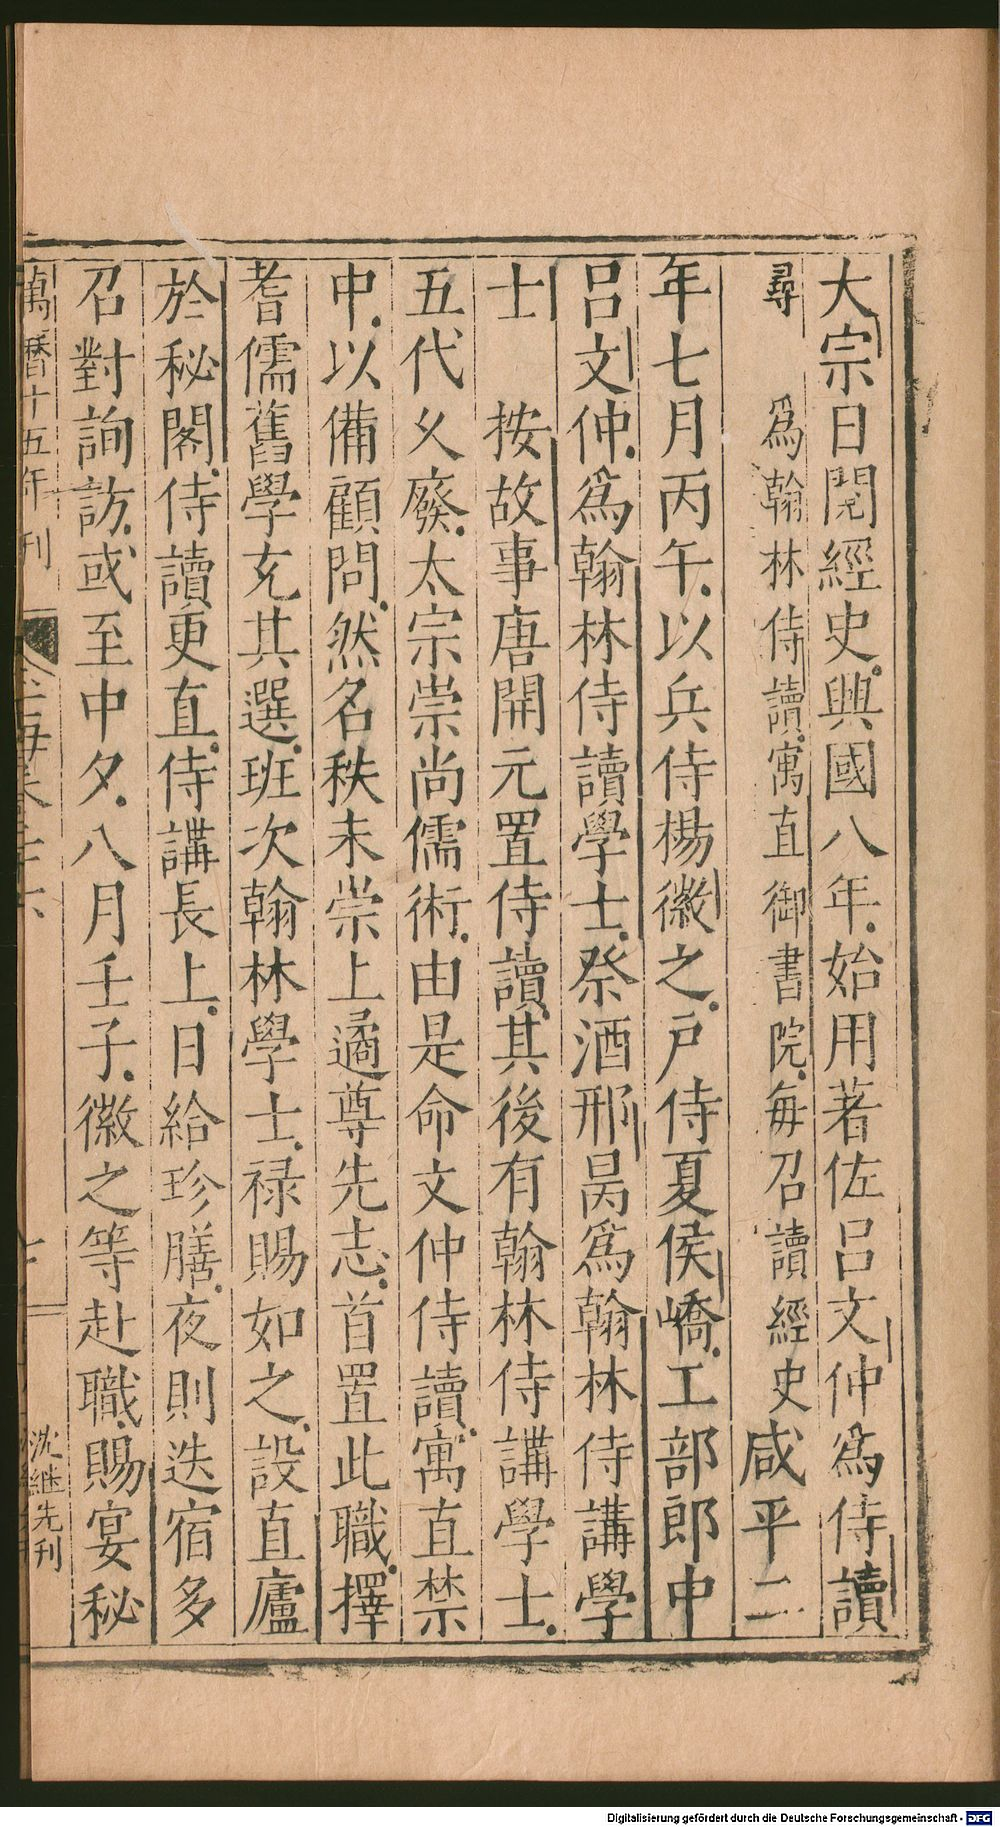 大宗日閱經史興國八年始用著佐呂文仲爲侍讀
尋爲翰林侍讀寓直御書院每召讀經史咸平二
年七月丙午以兵侍楊徽之戶侍夏侯嶠工部郎中
呂文仲爲翰林侍讀學士祭酒邢昺爲翰林侍講學
士　按故事唐開元置侍讀其後有翰林侍講學士
五代久廢太宗崇尚儒術由是命文仲侍讀寓直禁
中以備顧問然名秩未崇上遹尊先志首置此職擇
耆儒舊學充其選班次翰林學士祿賜如之設直廬
於秘閣侍讀更直侍講長上日給珍膳夜則迭宿多
召對詢訪或至中夕八月壬子徽之等赴職賜宴秘
萬曆十五年刊
沈継先刊
Digitalisierung gefördert durch die Deutsche Forschungsgemeinschaft - DFG